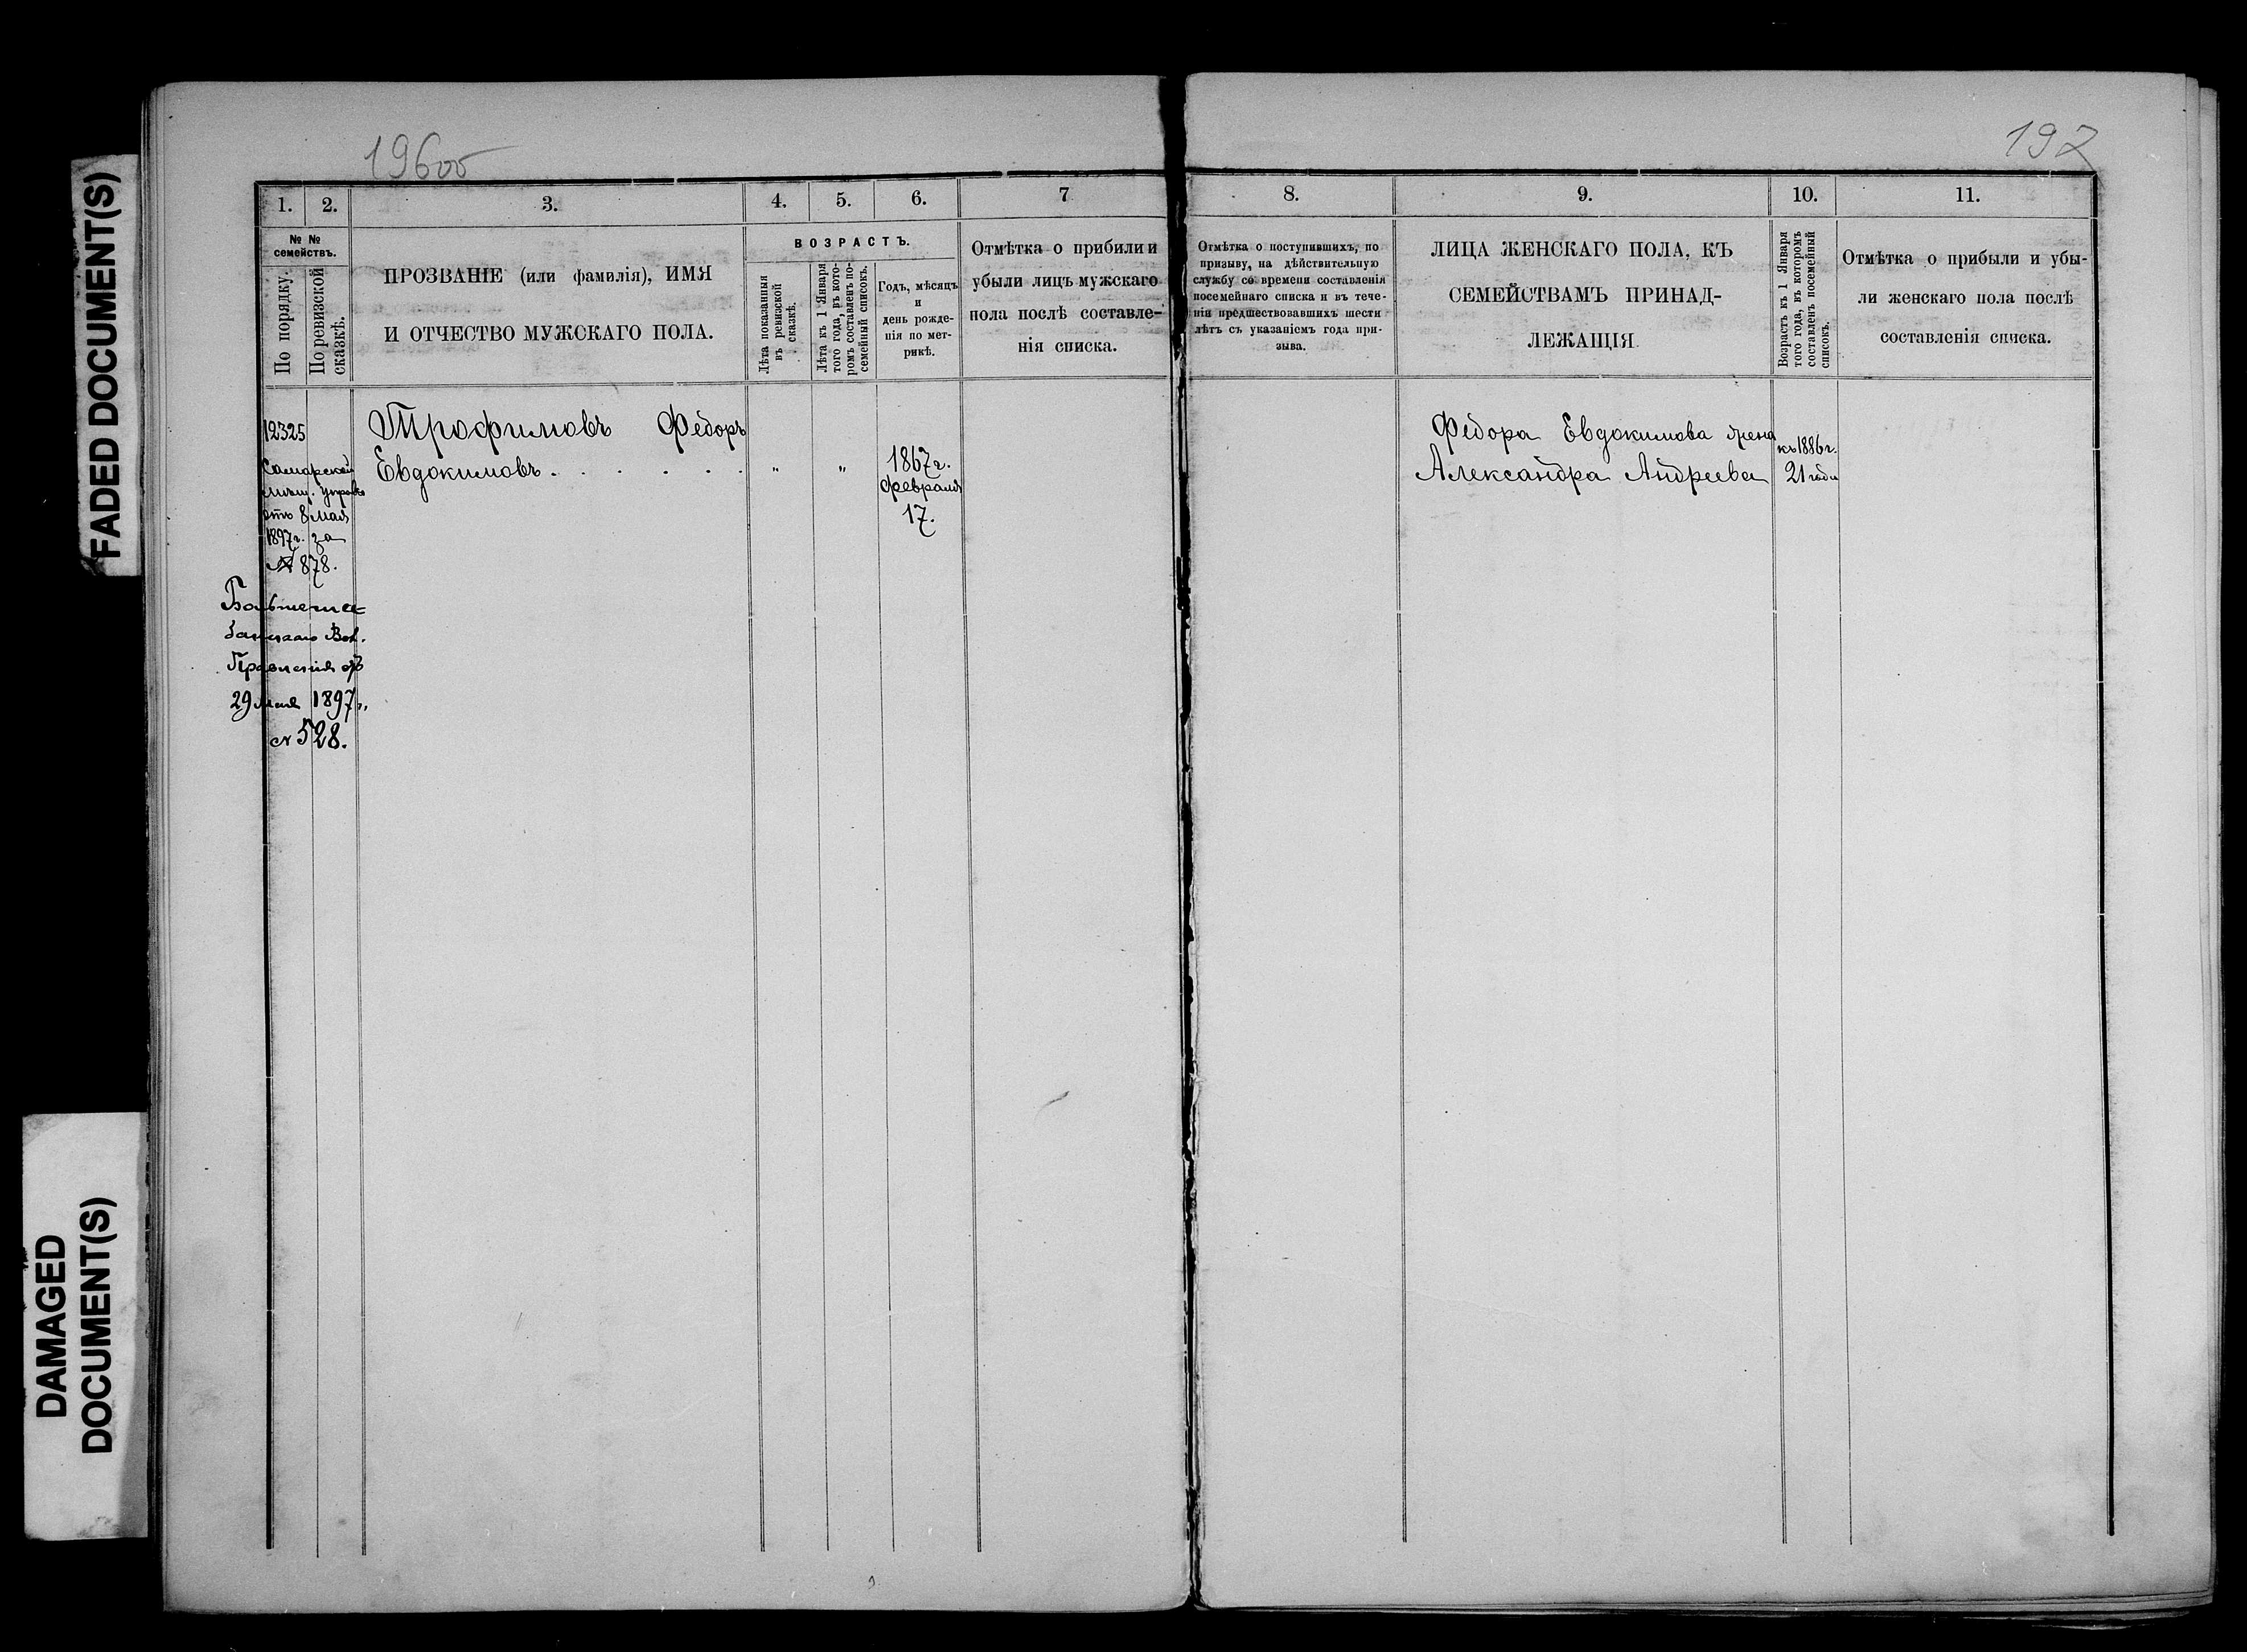 FADED DOCUMENT(S)
DAMAGED
DOCUMENT(S)
196об
1. 2. 3. 4. 5. 6. 7
№ №
семействъ.
По порядку.
По ревизской
сказкѣ.
ПРОЗВАНІЕ (или фамилія), ИМЯ
И ОТЧЕСТВО МУЖСКАГО ПОЛА.
ВОЗРАСТЪ.
Лѣта показанныя
въ ревизской
сказкѣ.
Лѣта къ 1 Января
того года, въ кото-
ромъ составленъ по-
семейный списокъ.
Годъ, мѣсяцъ
и
день рожде-
нія по мет-
рикѣ.
Отмѣтка о прибили и
убыли лицъ мужскаго
пола послѣ составле-
нія списка.
12325
Самарской
мѣщ. управы
отъ 8 Мая
1897г. за
№ 878.
Вол.
Правленія отъ
29 Мая 1897г.
№ 528.
Трофимовъ Федоръ
Евдокимовъ . . . . . . " "
1867г.
Февраля
17.
197
8. 9. 10. 11.
Отмѣтка о поступившихъ, по
призыву, на дѣйствительную
службу со времени составленія
посемейнаго списка и въ тече-
ніи предшествовавшихъ шести
лѣтъ съ указаніемъ года при-
зыва.
ЛИЦА ЖЕНСКАГО ПОЛА, КЪ
СЕМЕЙСТВАМЪ ПРИНАД-
ЛЕЖАЩІЯ.
Возрастъ къ 1 Января
того года, въ которомъ
составленъ посемейный
списокъ.
Отмѣтка о прибыли и убы-
ли женскаго пола послѣ
составленія списка.
Федора Евдокимова жена
Александра Андреева
къ 1886г.
21 года